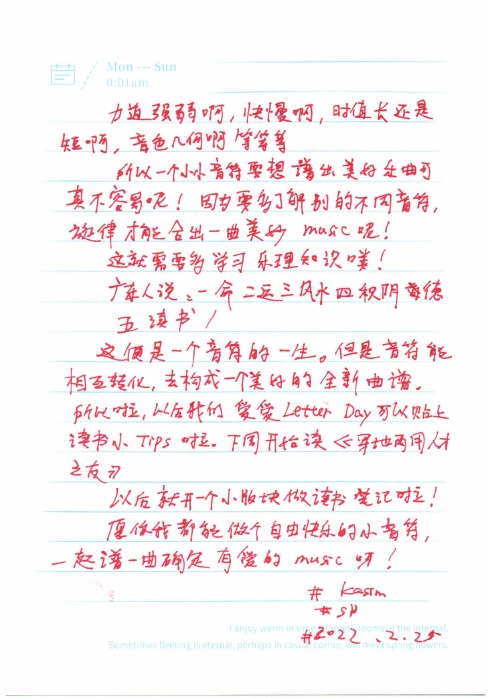 Mon --- Sun
0:01am
力道强弱啊，快慢啊，时值长还是
短啊，音色几何啊 等等等
所以一个小小音符要想谱出美好乐曲可
真不容易呢！因为要多了解别的不同音符，
旋律才能合出一曲美妙 music 呢！
这就需要多学习乐理知识喽！
广东人说：一命二运三风水四积阴德
五读书！
这便是一个音符的一生。但是音符能
相互转化，去构成一个美好的全新曲谱。
所以啦，以后我们 爱爱 Letter Day 可以贴上
读书小 Tips 啦。下周开始读《两用人才
之友》
以后就开一个小版块做读书笔记啦！
愿你我都能做个自由快乐的小音符，
一起谱一曲确定有爱的 music 呀！
3
# kasim
# SH
#2022.2.25
I enjoy warm in blooms in the internal,
Sometimes fleeting is eternal, perhaps in casual corner, will meet spring flowers.